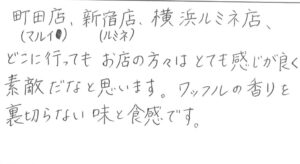 町田店、新宿店、横浜ルミネ店、
(マルイ) (ルミネ)
どこに行っても お店の方々はとても感じが良く
素敵だなと思います。ワッフルの香りを
裏切らない 味と食感です。